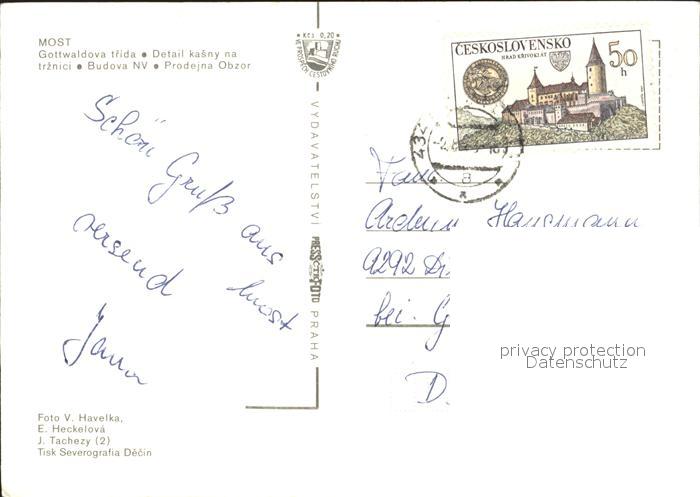 MOST
Gottwaldova třída ● Detail kašny na
tržnici ● Budova NV ● Prodejna Obzor
Kčs 0,20
VE PROSPĚCH CESTOVNÍHO RUCHU
ČESKOSLOVENSKO
HRAD KŘIVOKLÁT
50
h
8
Schön Gruß aus
versend Most
Jana
VYDAVATELSTVÍ PRESSFOTO PRAHA
ČTK
Fam
Hansmann
9292
bei. G
D.
privacy protection
Datenschutz
Foto V. Havelka,
E. Heckelová
J. Tachezy (2)
Tisk Severografia Děčín